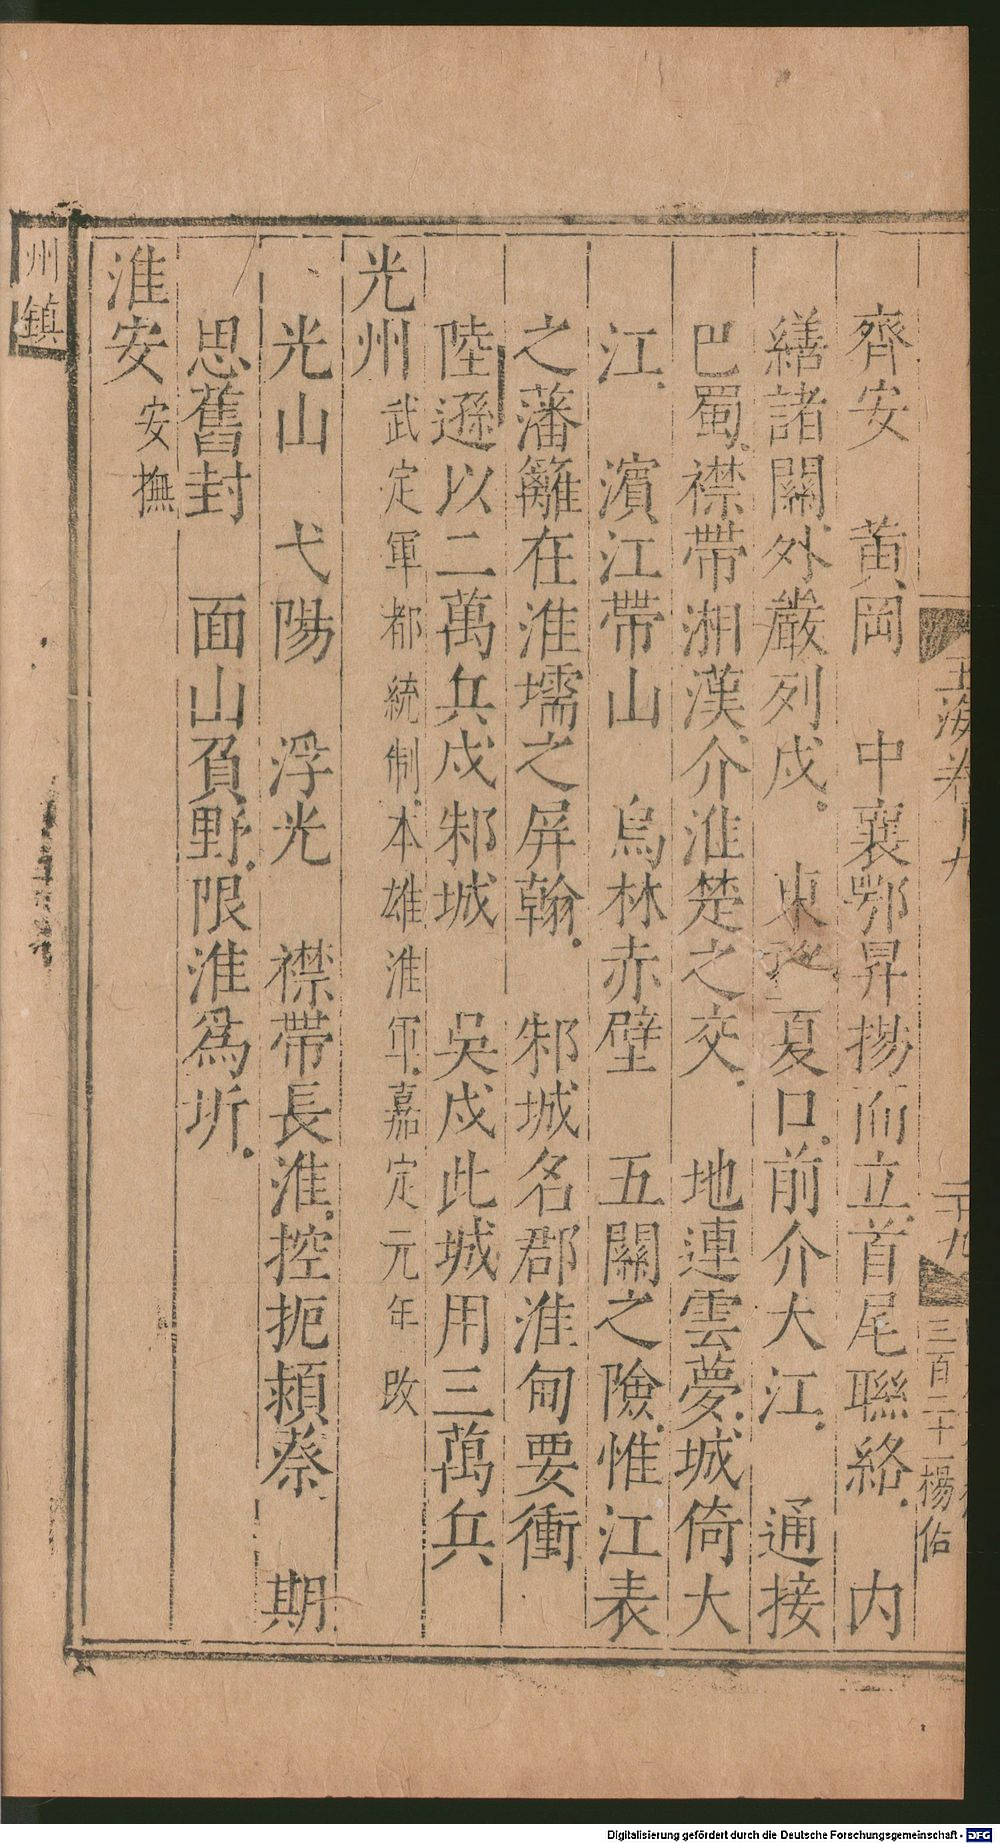 齊安　黃岡　中襄鄂昇揚而立首尾聯絡　内
繕諸關外嚴列戍　東 夏口前介大江　通接
巴蜀襟帶湘漢介淮楚之交　地連雲夢城倚大
江　濱江帶山　烏林赤壁　五關之險惟江表
之藩籬在淮壖之屏翰　邾城名郡淮甸要衝
陸遜以二萬兵戍邾城　吳戍此城用三萬兵
光州 武定軍都統制本雄淮軍嘉定元年改
光山　弋陽　浮光　襟帶長淮控扼潁蔡　期
思舊封　面山負野限淮爲圻
淮安 安撫
州鎮
三百二十一 楊佑
Digitalisierung gefördert durch die Deutsche Forschungsgemeinschaft - DFG